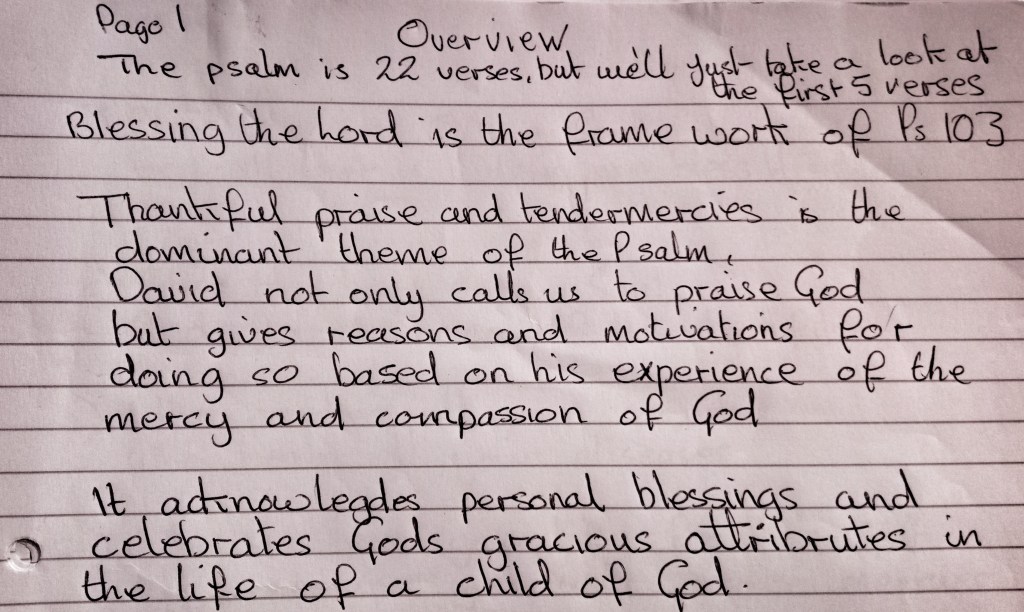 Page 1
Overview
The psalm is 22 verses, but we'll just take a look at
the first 5 verses
Blessing the Lord is the frame work of Ps 103
Thankful praise and tendermercies is the
dominant theme of the Psalm,
David not only calls us to praise God
but gives reasons and motivations for
doing so based on his experience of the
mercy and compassion of God
It acknowlegdes personal blessings and
celebrates Gods gracious attribrutes in
the life of a child of God.